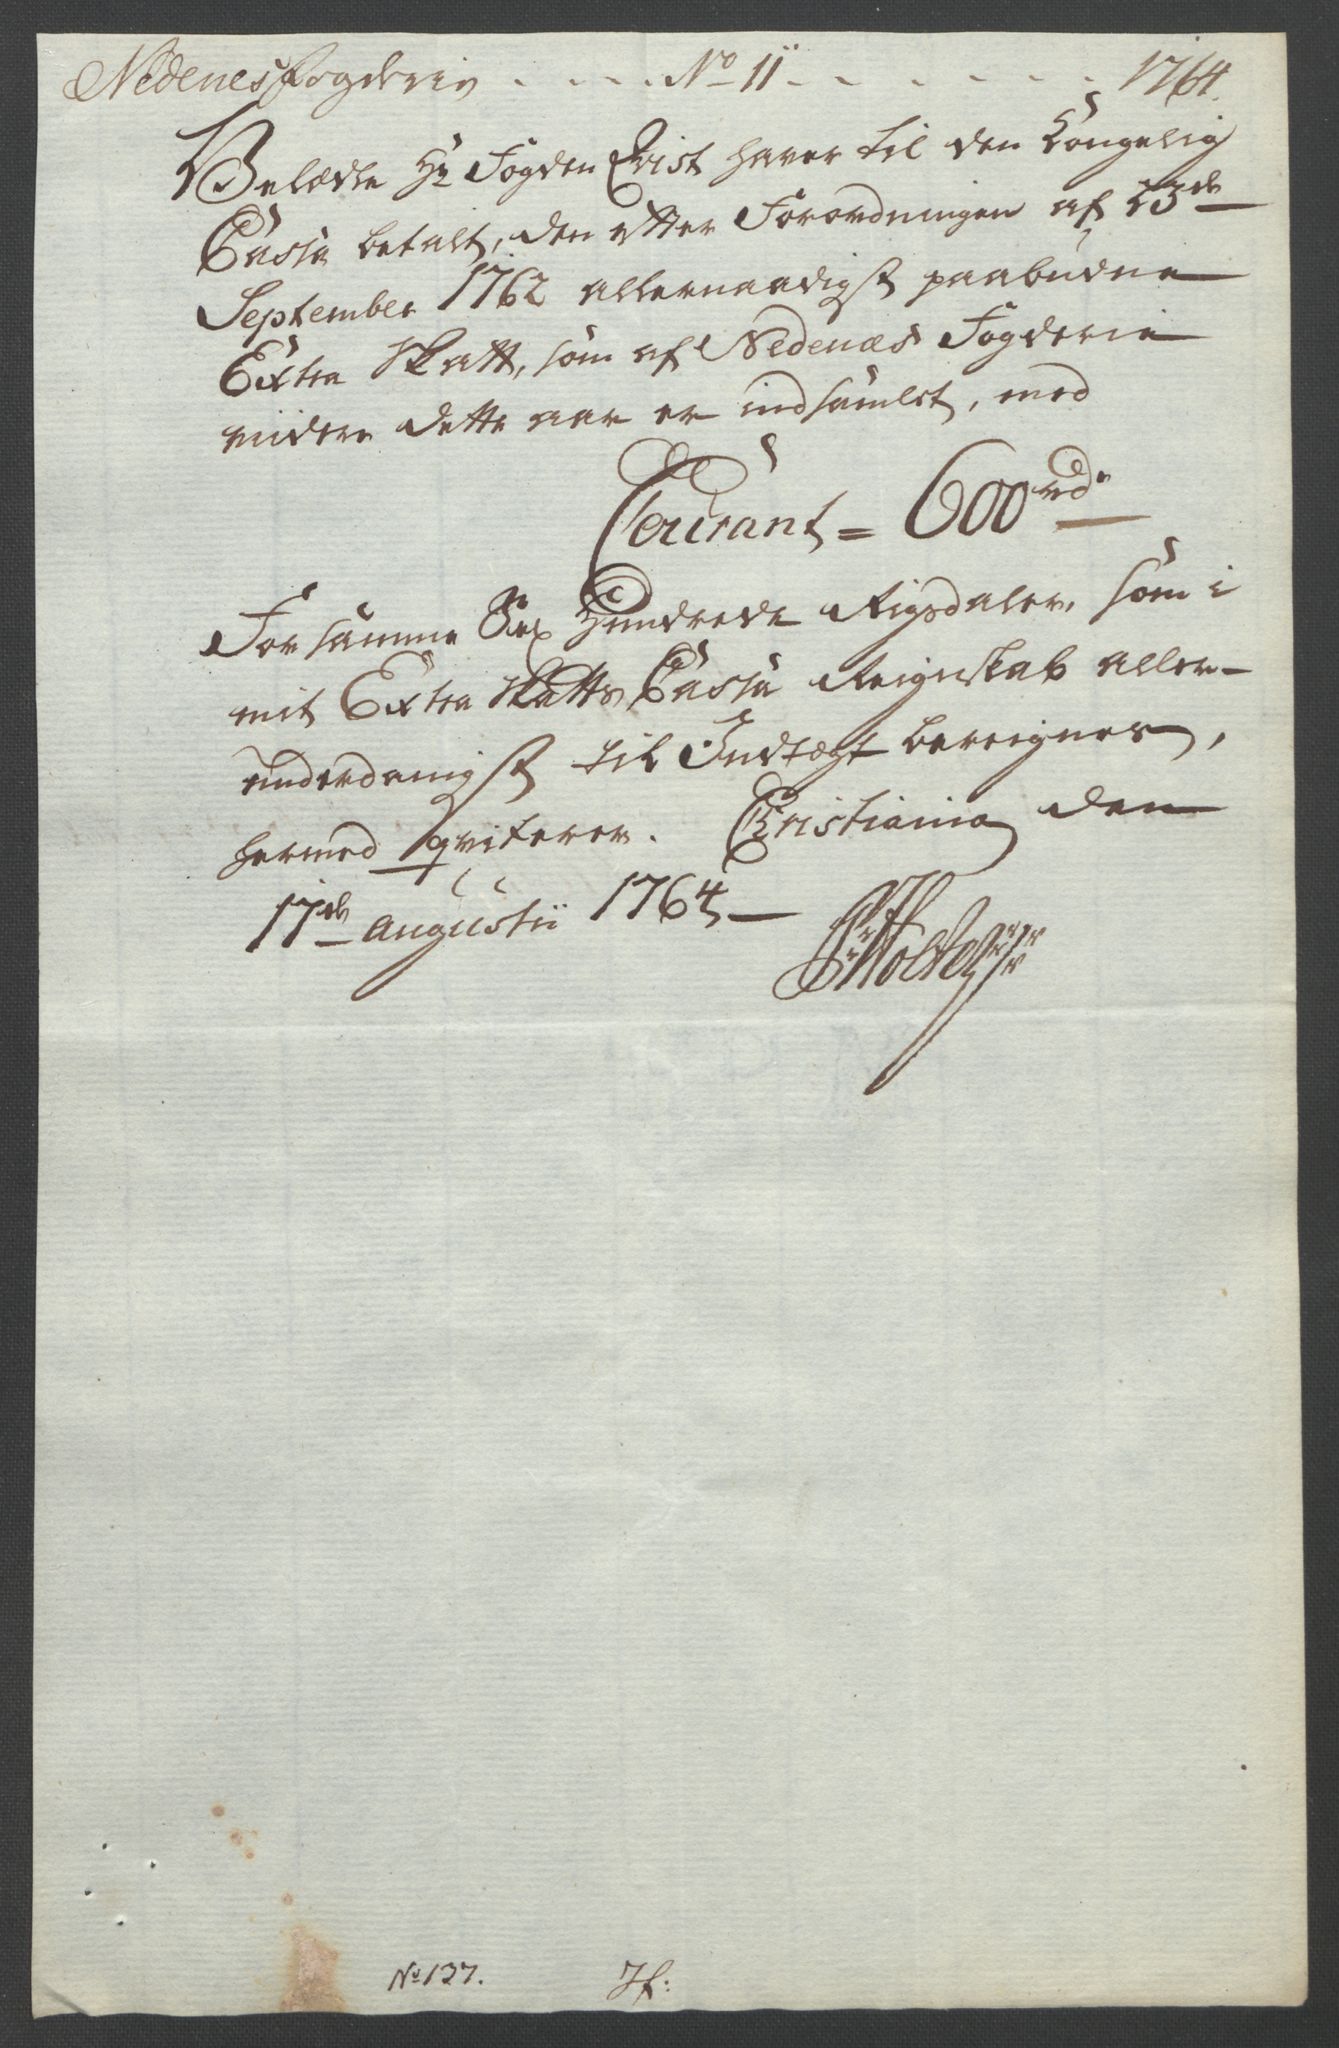 Nedenes fogderie . . . . No 11 . . . . . . 1764.
Velædle Hr Fogden Qvist haver til den Kongelig
Cassa betalt, den efter Forordningen af 23de
September 1762 allernaadigst paabudne
Extra Skatt, som af Nedenæs Fogderie
viidere dette aar er indsamlet, med
Courant = 600 rd
For samme Sex Hundrede Rigsdaler, som i
mit Extra Skatts Cassa Reignskab aller-
underdanigst til Indtægt bereignes,
hermed qviterer. Christiania den
17de Augustii 1764
Holter
No 127. Hf: